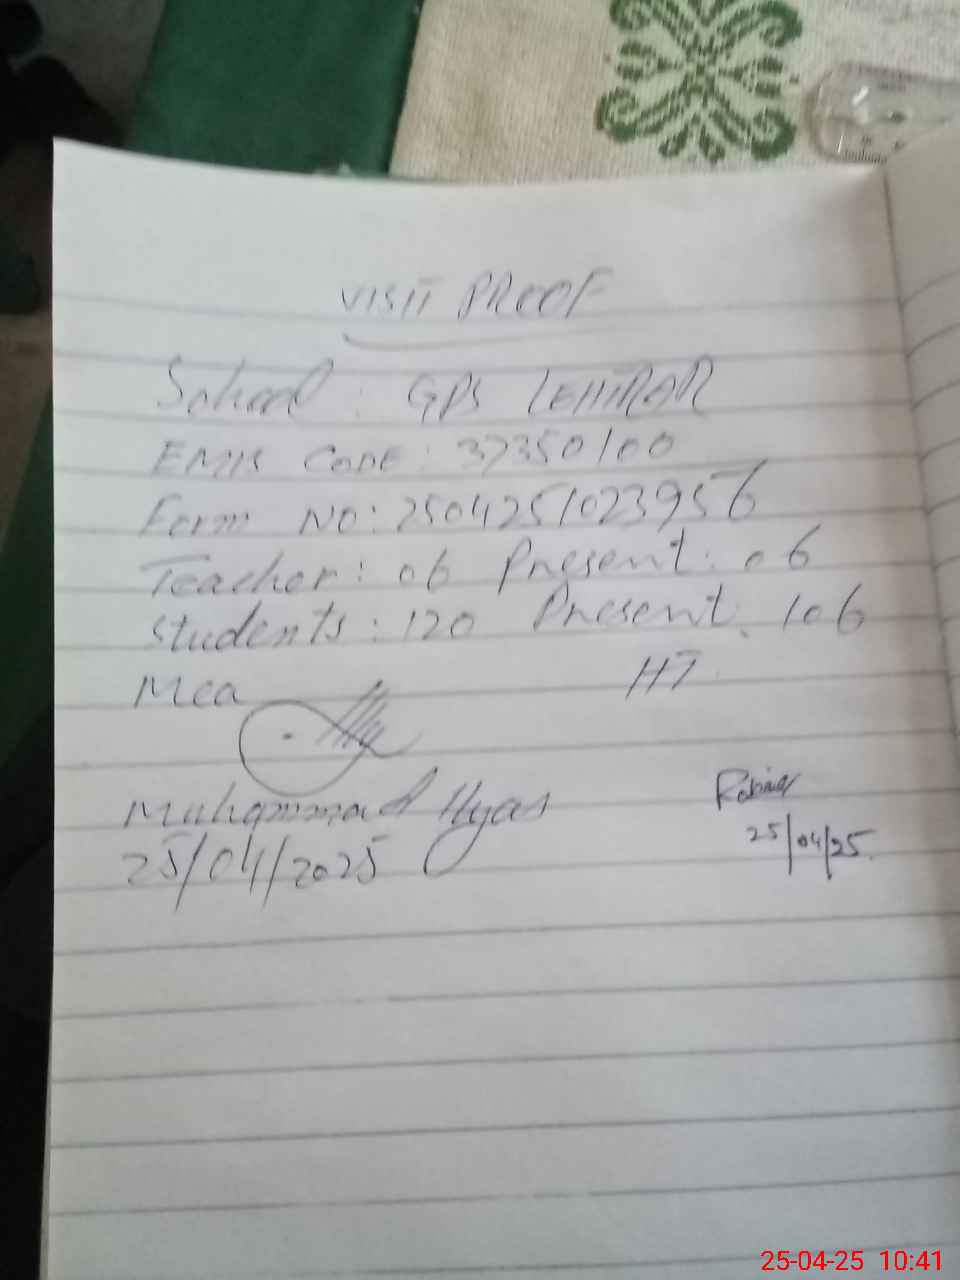 VISIT PROOF
School: GPS LEHTRAR
EMIS CODE: 37350100
Form NO: 2504251023956
Teacher: 06 Present: 06
Students: 120 Present. 106
Mea HT
Muhammad Ilyas
25/04/2025
Rabia
25/04/25.
25-04-25 10:41